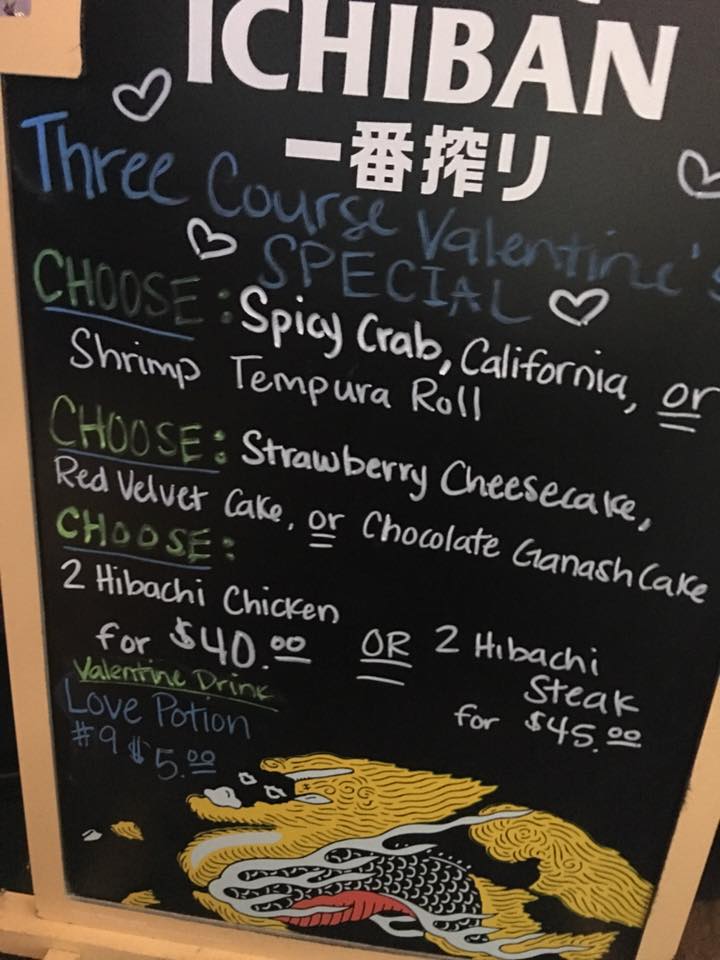 ICHIBAN
一番搾り
Three Course Valentine's
SPECIAL
CHOOSE: Spicy Crab, California, or
Shrimp Tempura Roll
CHOOSE: Strawberry Cheesecake,
Red Velvet Cake, or Chocolate Ganash Cake
CHOOSE:
2 Hibachi Chicken
for $40.00 OR 2 Hibachi
Steak
for $45.00
Valentine Drink
Love Potion
#9 $5.00